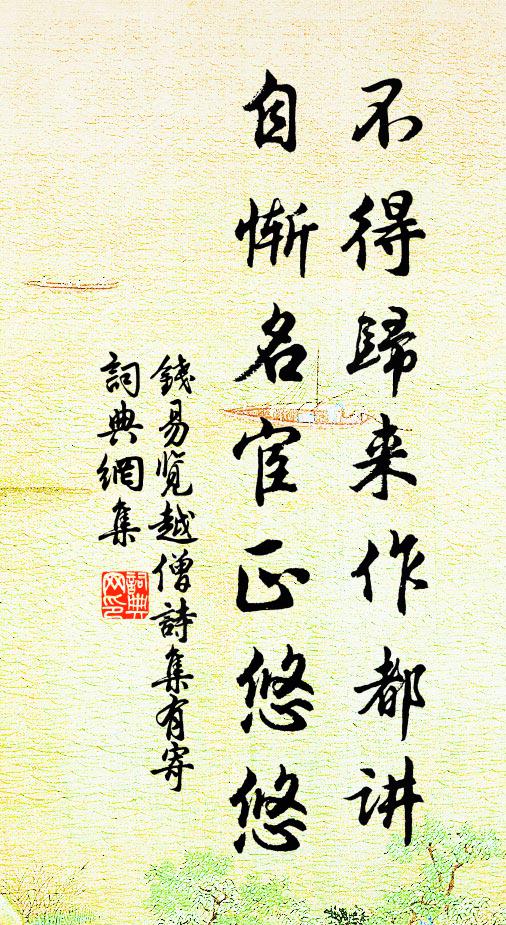 不得歸来作都讲
自惭名宦正悠悠
錢易览越僧詩集有寄
詞典網集
詞典网印